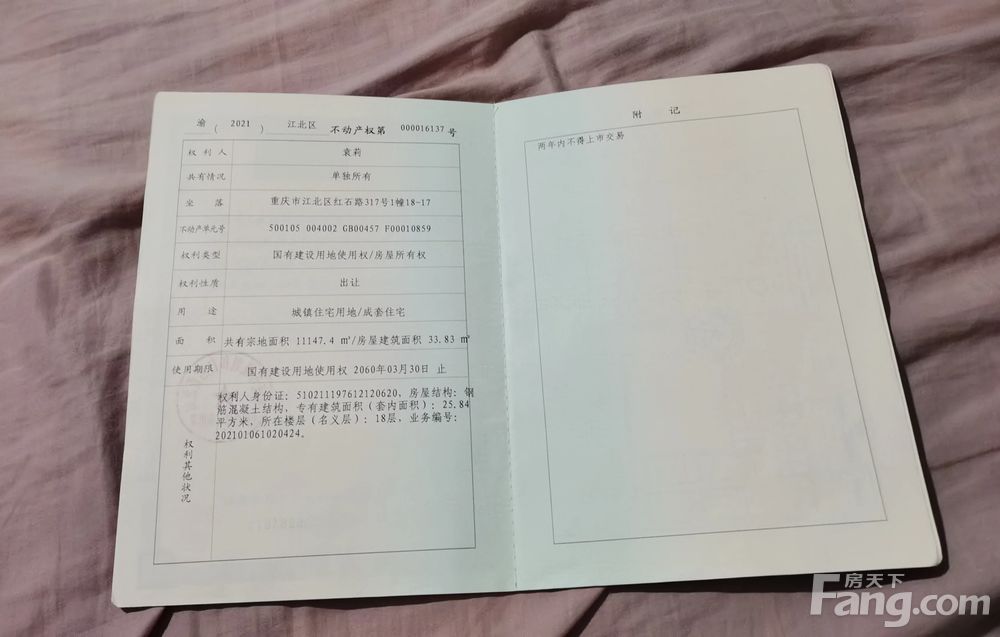 渝（2021）江北区 不动产权第 000016137 号
权利人 袁莉
共有情况 单独所有
坐落 重庆市江北区红石路317号1幢18-17
不动产单元号 500105 004002 GB00457 F00010859
权利类型 国有建设用地使用权/房屋所有权
权利性质 出让
用途 城镇住宅用地/成套住宅
面积 共有宗地面积 11147.4 ㎡/房屋建筑面积 33.83 ㎡
使用期限 国有建设用地使用权 2060年03月30日 止
权利其他状况
权利人身份证：510211197612120620，房屋结构：钢
筋混凝土结构，专有建筑面积（套内面积）：25.84
平方米，所在楼层（名义层）：18层，业务编号：
202101061020424。
附记
两年内不得上市交易
房天下
Fang.com